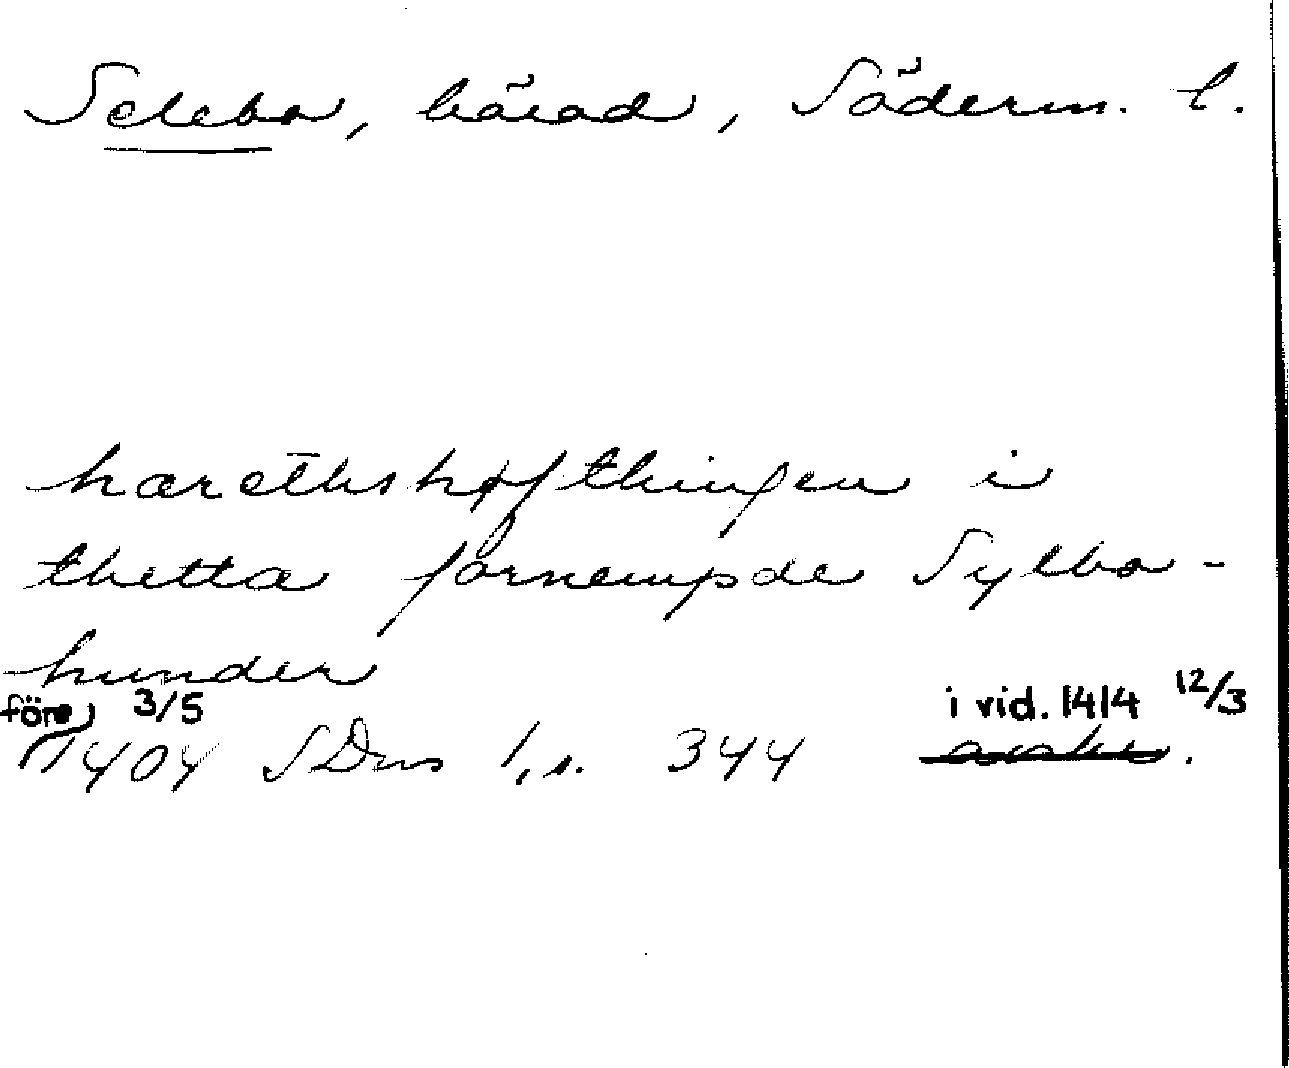 Selebo, härad, Söderm. l.
harethshøfthingen i
thetta førnempde Sylbo-
hunder
före 3/5 i vid. 1414 12/3
1404 SDns 1, s. 344